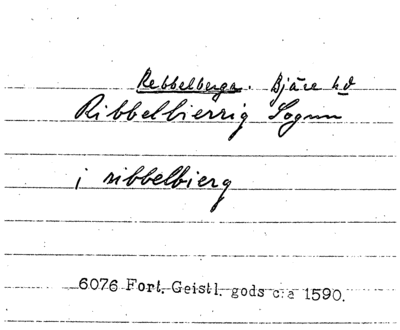 Rebbelberga. Bjäre hd
Ribbelbierrig Sognn
i ribbelbierg
6076 Fort. Geistl. gods c:a 1590.